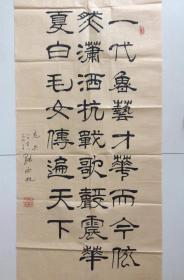 一代魯藝才華而今依
然瀟洒抗戰歌聲震華
夏白毛女傳遍天下